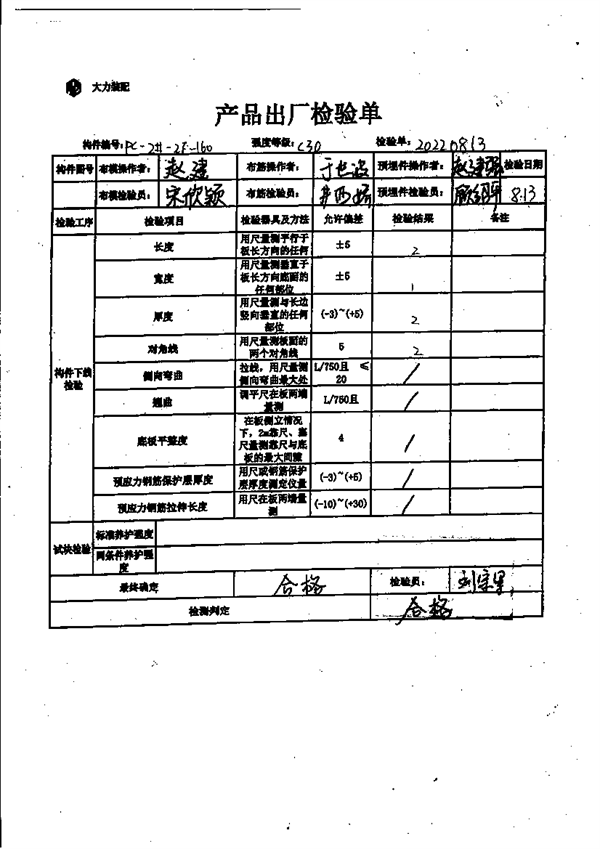 大力装配
产品出厂检验单
构件编号：PC-2#-2F-160 强度等级：C30 检验单：20220813
构件图号 布模操作者：赵建 布筋操作者： 预埋件操作者：赵建 检验日期
布模检验员：宋欣颖 布筋检验员： 预埋件检验员： 8.13
检验工序 检验项目 检验器具及方法 允许偏差 检验结果 备注
构件下线检验
长度 用尺量测平行于板长方向的任何 ±5 2
宽度 用尺量测垂直于板长方向底面的任何部位 ±5 1
厚度 用尺量测与长边竖向垂直的任何部位 (-3)~(+5) 2
对角线 用尺量测板面的两个对角线 5 2
侧向弯曲 拉线，用尺量测侧向弯曲最大处 L/750且 ≤20 /
翘曲 调平尺在板两端量测 L/750且 /
底板平整度 在板侧立情况下，2m靠尺、塞尺量测靠尺与底板的最大间隙 4 /
预应力钢筋保护层厚度 用尺或钢筋保护层厚度测定仪量 (-3)~(+5) /
预应力钢筋拉伸长度 用尺在板两端量测 (-10)~(+30) /
试块检验 标准养护强度
同条件养护强度
最终确定 合格 检验员：
检测判定 合格